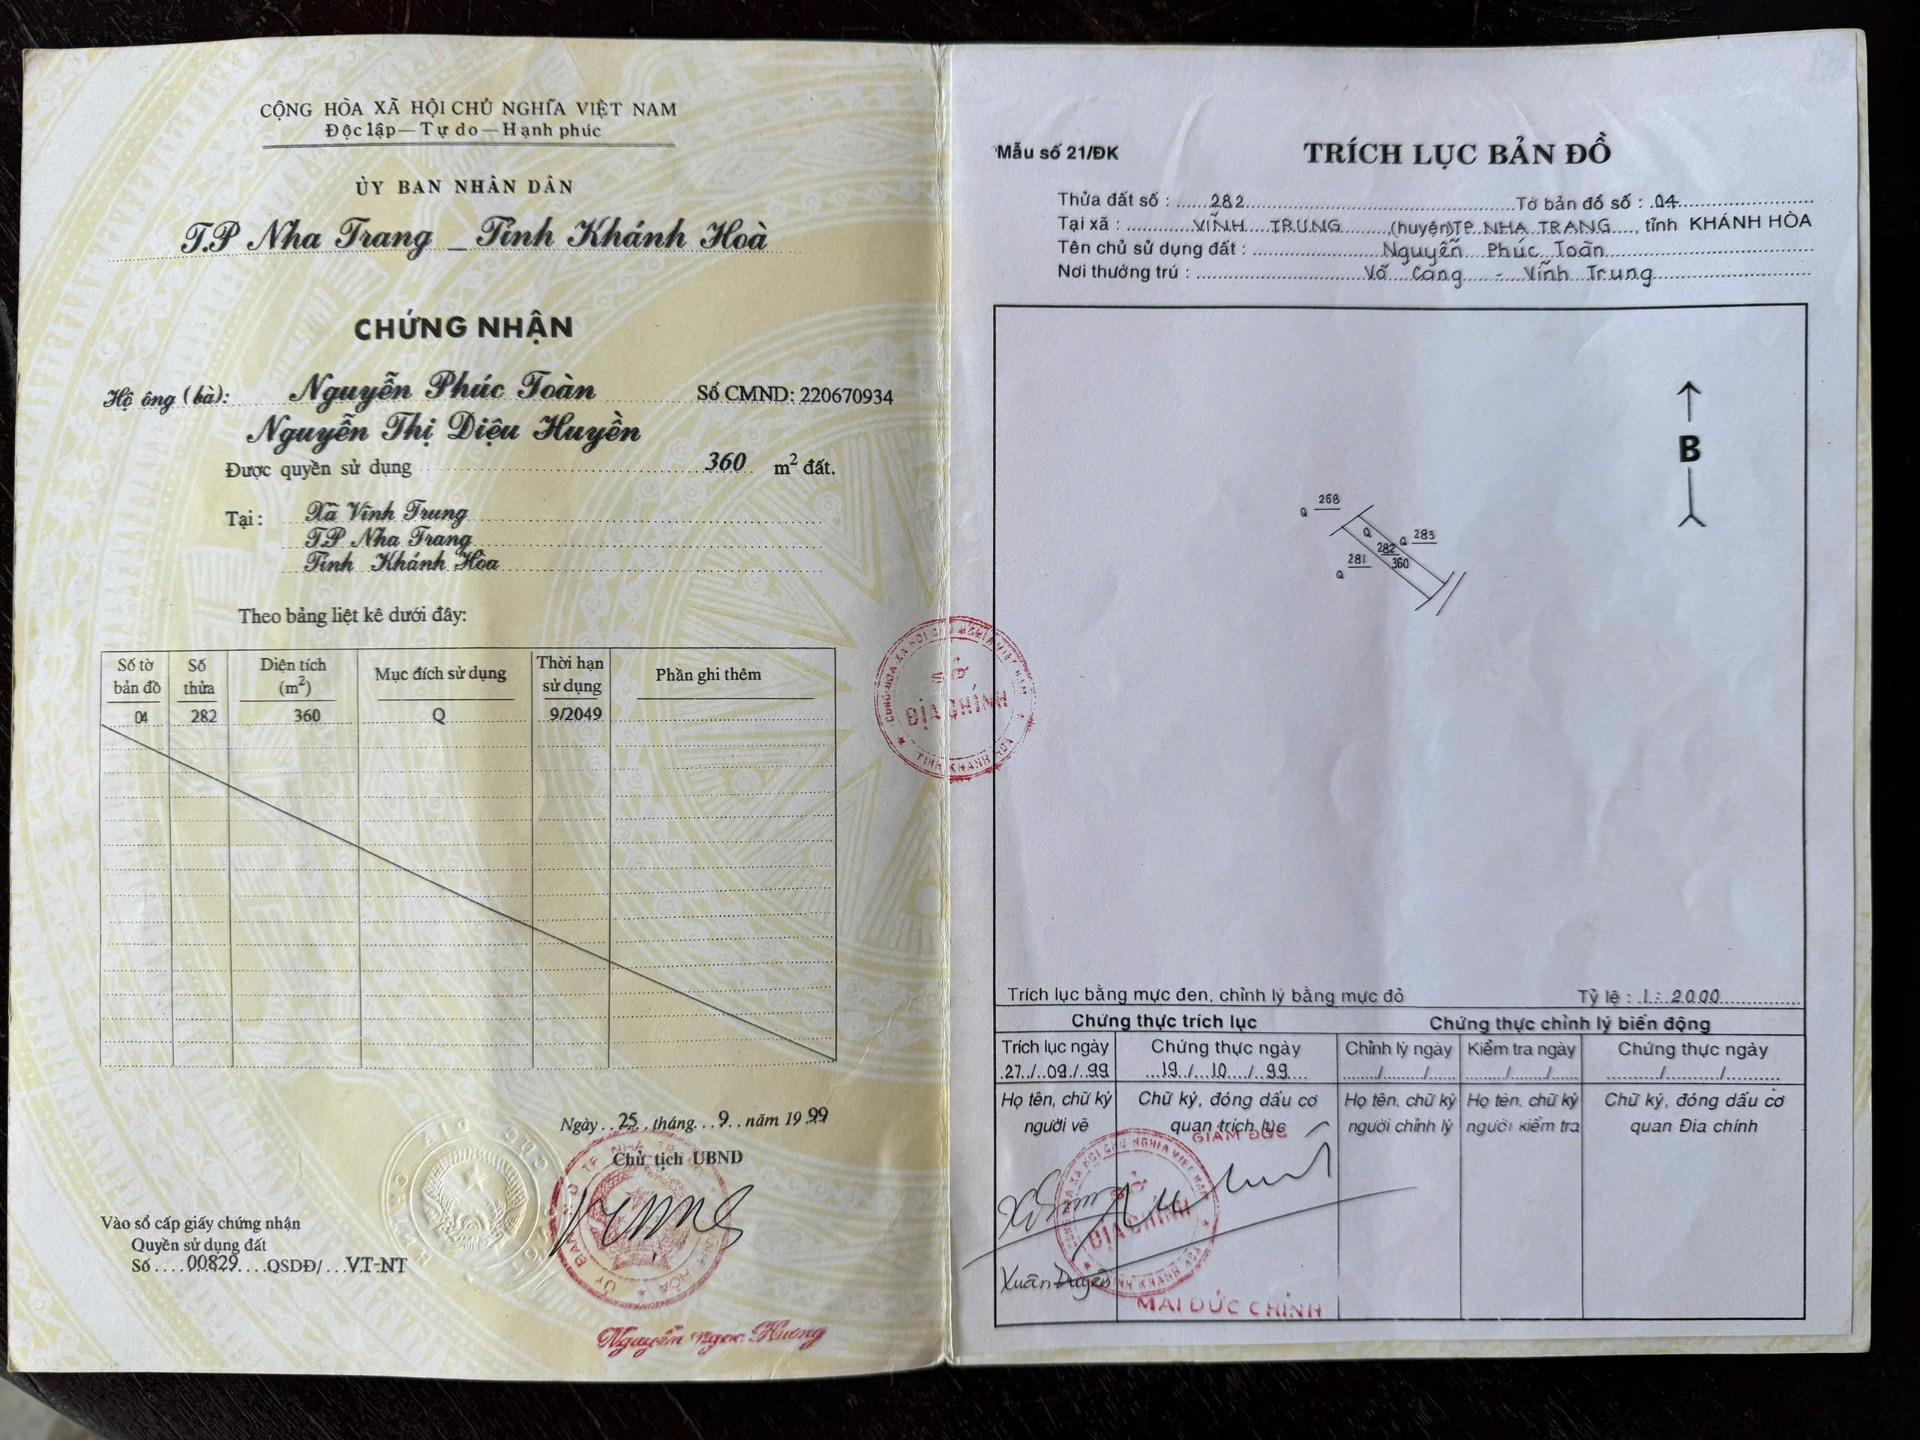 CỘNG HÒA XÃ HỘI CHỦ NGHĨA VIỆT NAM
Độc lập — Tự do — Hạnh phúc
ỦY BAN NHÂN DÂN
T.P Nha Trang _ Tỉnh Khánh Hoà
CHỨNG NHẬN
Hộ ông (bà): Nguyễn Phúc Toàn Số CMND: 220670934
Nguyễn Thị Diệu Huyền
Được quyền sử dụng 360 m² đất.
Tại: Xã Vĩnh Trung
T.P Nha Trang
Tỉnh Khánh Hòa
Theo bảng liệt kê dưới đây:
Số tờ bản đồ Số thửa Diện tích (m²) Mục đích sử dụng Thời hạn sử dụng Phần ghi thêm
04 282 360 Q 9/2049
Ngày 25 tháng 9 năm 1999
Chủ tịch UBND
Vào sổ cấp giấy chứng nhận
Quyền sử dụng đất
Số 00829 QSDĐ/ VT-NT
Nguyễn Ngọc Hương
CỘNG HÒA XÃ HỘI CHỦ NGHĨA VIỆT NAM
ĐỊA CHÍNH
TỈNH KHÁNH HÒA
Mẫu số 21/ĐK
TRÍCH LỤC BẢN ĐỒ
Thửa đất số : 282 Tờ bản đồ số : 04
Tại xã : VĨNH TRUNG (huyện) TP. NHA TRANG, tỉnh KHÁNH HÒA
Tên chủ sử dụng đất : Nguyễn Phúc Toàn
Nơi thường trú : Võ Cang - Vĩnh Trung
B
Q 268
Q 282 360
Q 283
Q 281
Trích lục bằng mực đen, chỉnh lý bằng mực đỏ Tỷ lệ : 1: 2000
Chứng thực trích lục Chứng thực chỉnh lý biến động
Trích lục ngày Chứng thực ngày Chỉnh lý ngày Kiểm tra ngày Chứng thực ngày
27/09/99 19/10/99 / / / / / /
Họ tên, chữ ký người vẽ Chữ ký, đóng dấu cơ quan trích lục Họ tên, chữ ký người chỉnh lý Họ tên, chữ ký người kiểm tra Chữ ký, đóng dấu cơ quan Địa chính
GIÁM ĐỐC
ĐỊA CHÍNH
Xuân Duyên
MAI ĐỨC CHÍNH